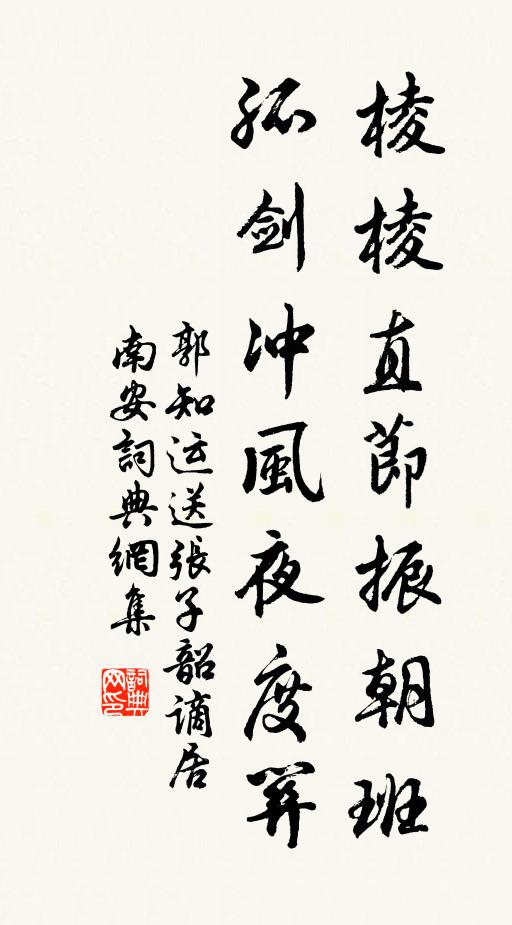 棱棱直節振朝班
孤剑冲風夜度關
郭知运送張子韶謫居
南安詞典網集
詞典
网印